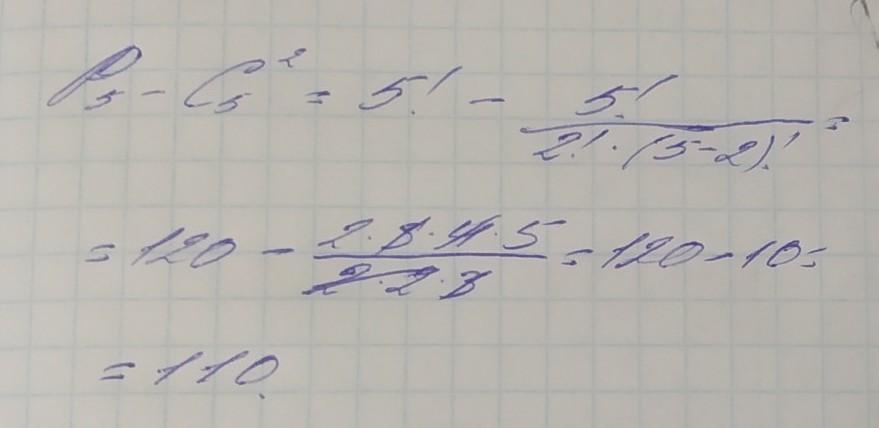 P₅ - C₅² = 5! - 5!/(2!·(5-2)!) =
= 120 - (2·3·4·5)/(2·2·3) = 120 - 10 =
= 110.